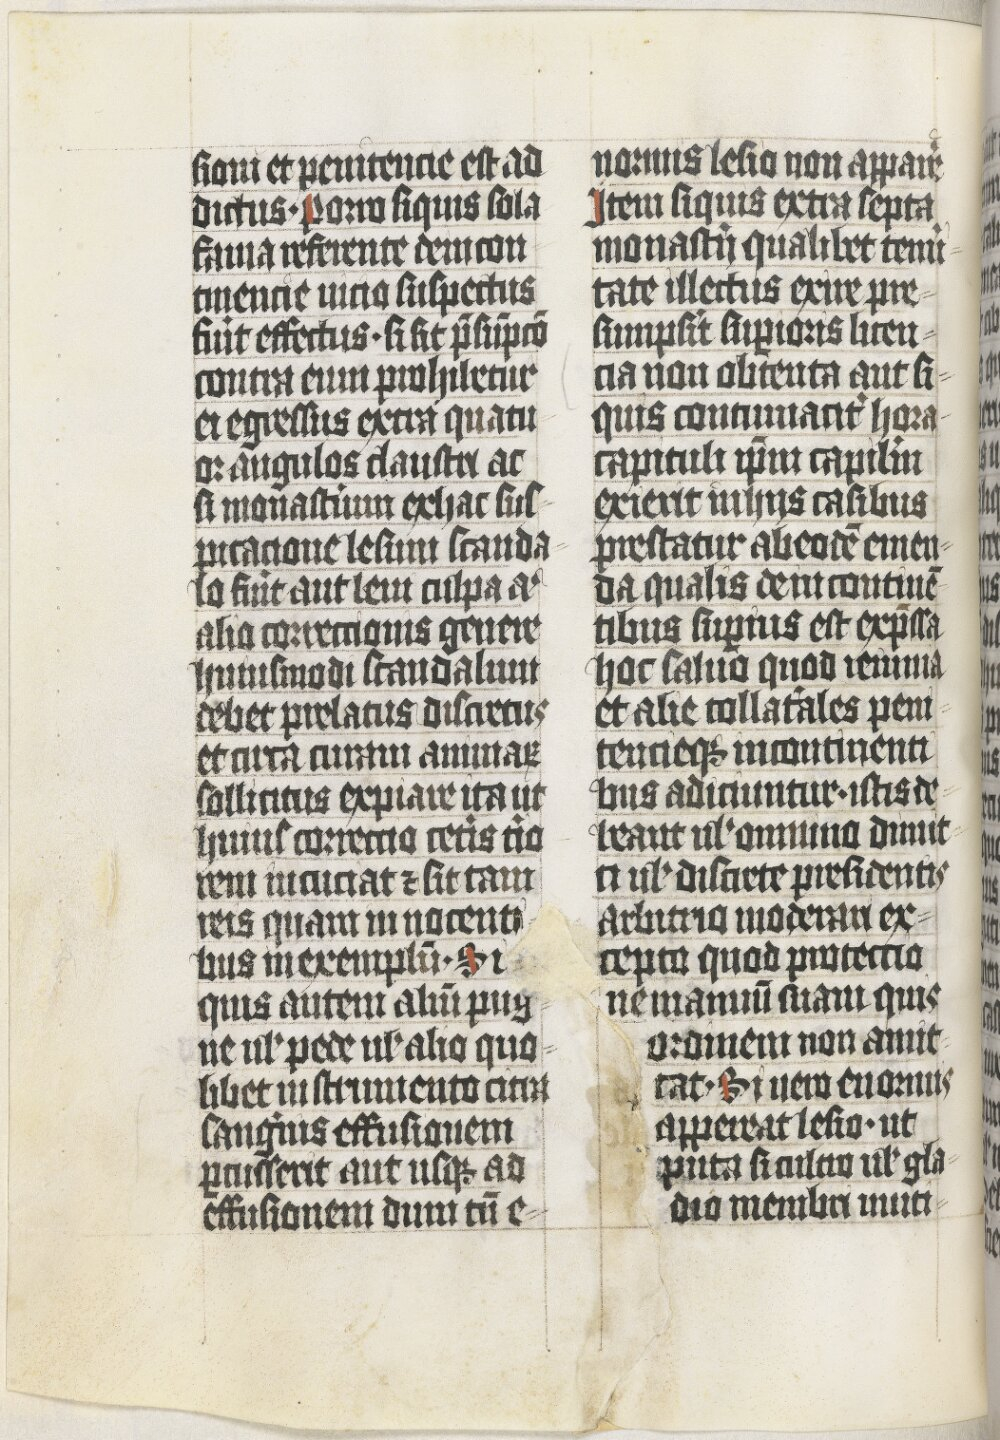 sioni et penitencie est ad
dictus · Porro siquis sola
fama referente de incon
tinencie uicio suspectus
fuit effectus · si sit p̄sūpcō
contra eum prohibetur
ei egressus extra quatu
or angulos claustri ac
si monast'ium ex hac sus
picacione lesum scanda
lo fuit aut leui culpa a'
alio correctionis genere
huiusmodi scandalum
debet prelatus discretus
et circa curam animaꝝ
sollicitus expiare ita ut
huius correctio cet'is t'io
rem incuciat ⁊ sit tam
reis quam innocenti
bus in exemplū · Si
quis autem aliū pug
ne ul' pede ul' alio quo
libet instrumento citra
sang'nis effusionem
ꝑcusserit aut usqꝫ ad
effusionem dum tn̄ e
normis lesio non appare'
Item siquis extra septa
monast'ij qualibet tem'i
tate illectus exire pre
sumpsit sup'ioris licen
cia non obtenta aut si
quis continuauit' hora
capituli ip̄m capil'm
exierit in hijs casibus
prestatur ab eodē emen
da qualis de incontinē
tibus sup'ius est exp̄ssa
hoc saluo quod ieiunia
et alie collat'ales peni
tencieqꝫ incontinenti
bus adiciuntur · istis de
beant ul' omnino dimit
ti ul' discrete presidentis
arbitrio moderari ex
cepto quod protectio
ne manuū suam quis
ordinem non amit
tat · Si uero enormis
appereat lesio · ut
puta si cultro ul' gla
dio membri muti